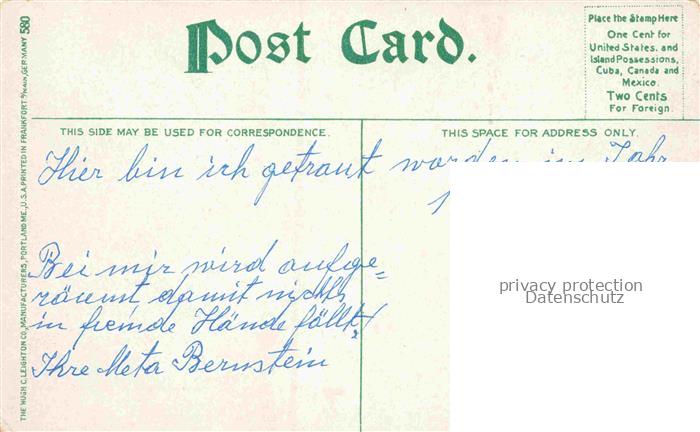 Post Card.
Place the Stamp Here
One Cent for
United States. and
Island Possessions,
Cuba, Canada and
Mexico.
Two Cents
For Foreign.
THIS SIDE MAY BE USED FOR CORRESPONDENCE.
THIS SPACE FOR ADDRESS ONLY.
Hier bin ich getraut worden im Jahr
1
Bei mir wird aufge=
räumt, damit nichts
in fremde Hände fällt!
Ihre Meta Bernstein
privacy protection
Datenschutz
THE HUGH C. LEIGHTON CO., MANUFACTURERS, PORTLAND, ME., U.S.A. PRINTED IN FRANKFORT a/MAIN, GERMANY 580